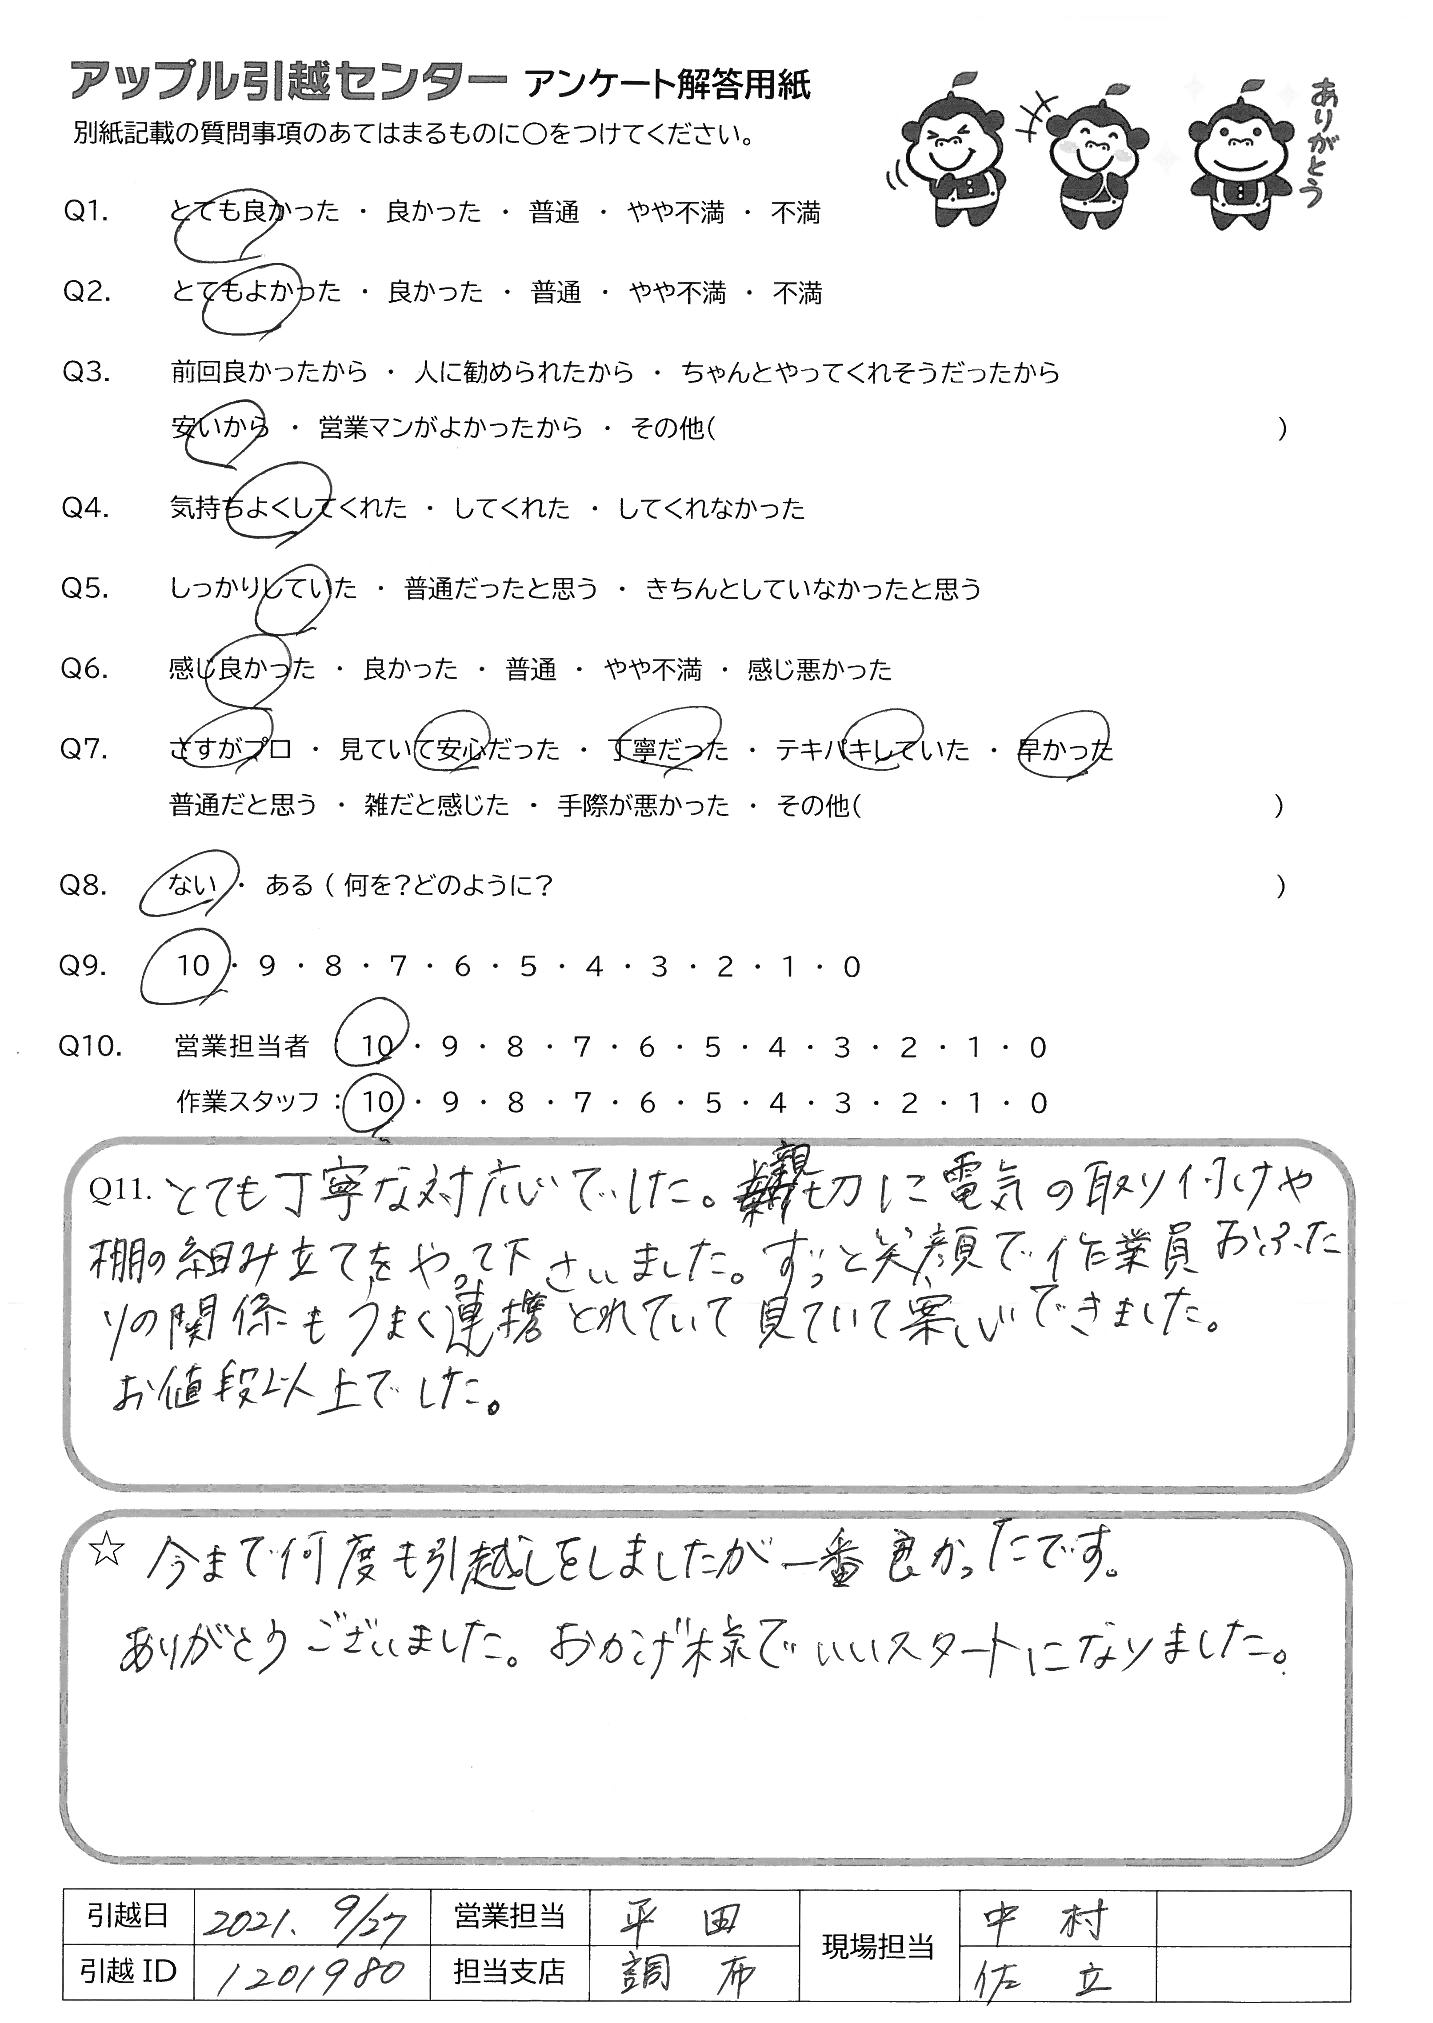 アップル引越センター アンケート解答用紙
別紙記載の質問事項のあてはまるものに〇をつけてください。
ありがとう
Q1. とても良かった ・ 良かった ・ 普通 ・ やや不満 ・ 不満
Q2. とてもよかった ・ 良かった ・ 普通 ・ やや不満 ・ 不満
Q3. 前回良かったから ・ 人に勧められたから ・ ちゃんとやってくれそうだったから
安いから ・ 営業マンがよかったから ・ その他( )
Q4. 気持ちよくしてくれた ・ してくれた ・ してくれなかった
Q5. しっかりしていた ・ 普通だったと思う ・ きちんとしていなかったと思う
Q6. 感じ良かった ・ 良かった ・ 普通 ・ やや不満 ・ 感じ悪かった
Q7. さすがプロ ・ 見ていて安心だった ・ 丁寧だった ・ テキパキしていた ・ 早かった
普通だと思う ・ 雑だと感じた ・ 手際が悪かった ・ その他( )
Q8. ない ・ ある ( 何を?どのように? )
Q9. 10 ・ 9 ・ 8 ・ 7 ・ 6 ・ 5 ・ 4 ・ 3 ・ 2 ・ 1 ・ 0
Q10. 営業担当者 10 ・ 9 ・ 8 ・ 7 ・ 6 ・ 5 ・ 4 ・ 3 ・ 2 ・ 1 ・ 0
作業スタッフ : 10 ・ 9 ・ 8 ・ 7 ・ 6 ・ 5 ・ 4 ・ 3 ・ 2 ・ 1 ・ 0
Q11. とても丁寧な対応でした。親切に電気の取り付けや
棚の組み立てをやって下さいました。ずっと笑顔で作業員おふた
りの関係もうまく連携とれていて見ていて安心できました。
お値段以上でした。
☆ 今まで何度も引越しをしましたが一番良かったです。
ありがとうございました。おかげ様でいいスタートになりました。
引越日 2021. 9/27 営業担当 平田 現場担当 中村
引越ID 1201980 担当支店 調布 佐立